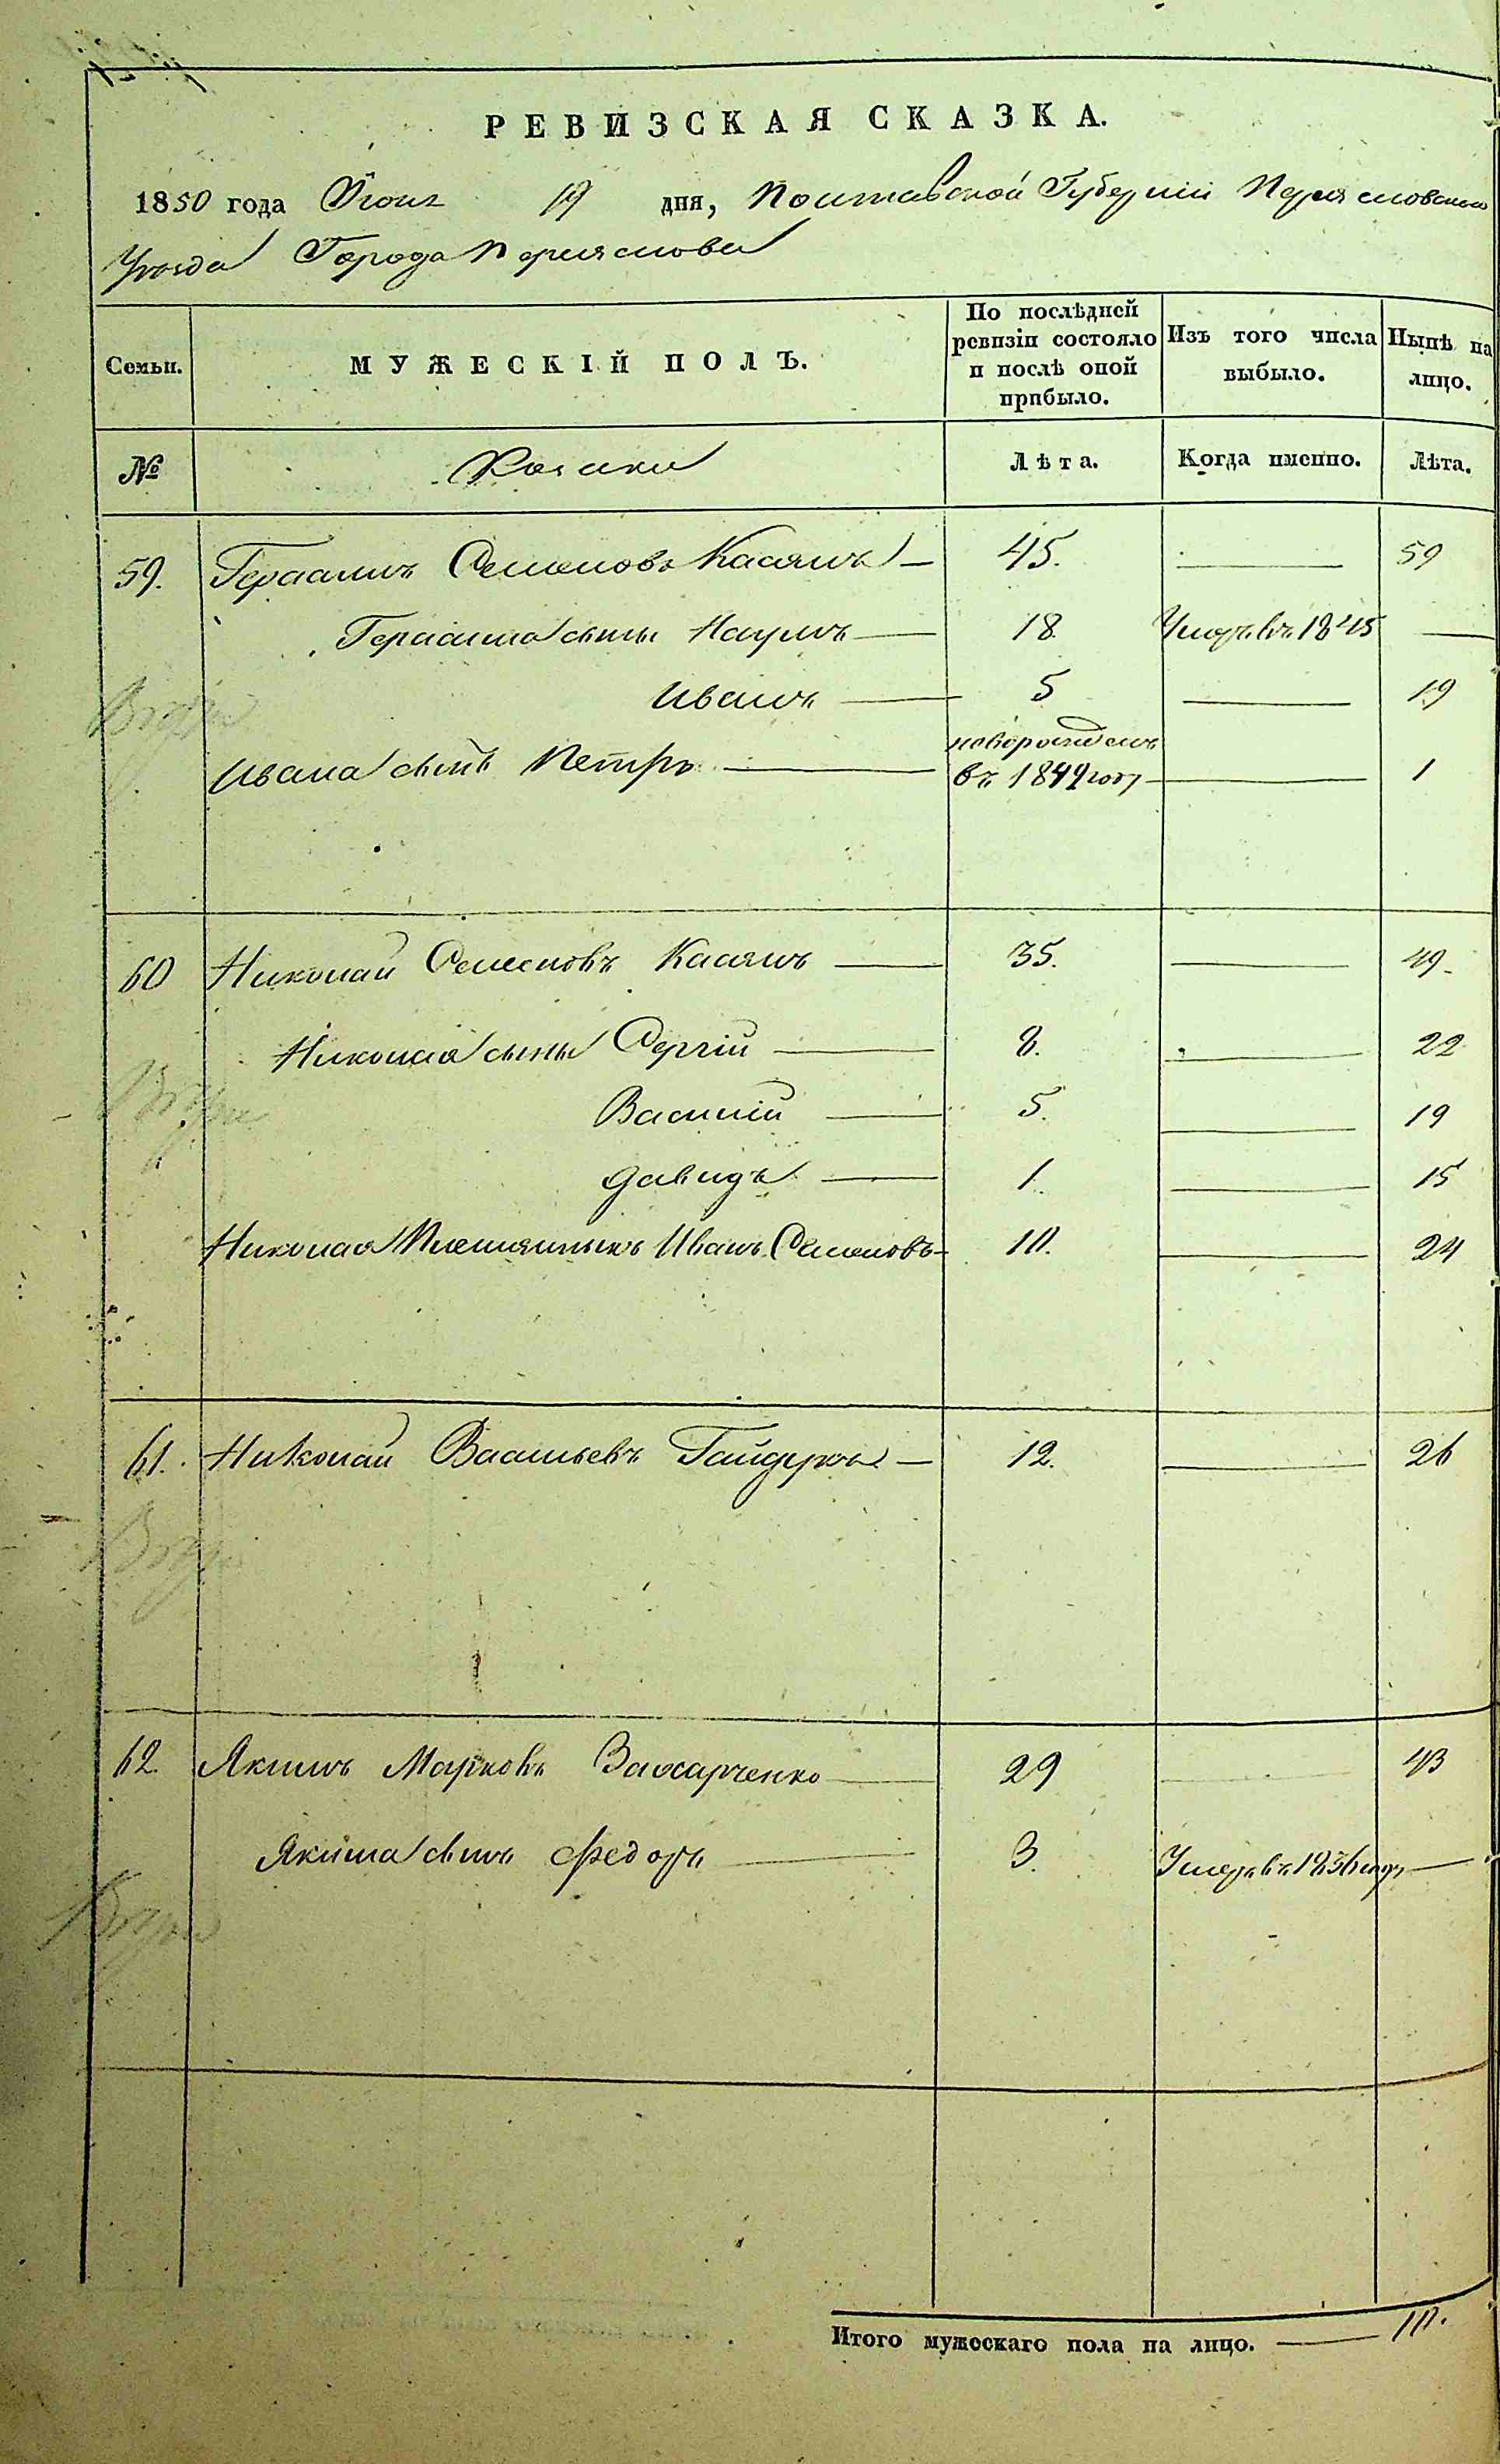 РЕВИЗСКАЯ СКАЗКА.
1850 года Июня 19 дня, Полтавской Губерніи Переясловскаго
Уезда Города Переяслова
Семьи. МУЖЕСКІЙ ПОЛЪ. По послѣдней ревизіи состояло и послѣ оной прибыло. Изъ того числа выбыло. Нынѣ на лицо.
№ Козаки Лѣта. Когда именно. Лѣта.
59. Герасимъ Семеновъ Касянъ — 45. — 59
Герасима сыны Наумъ — 18. Умеръ въ 1845 —
Иванъ — 5 — 19
Ивана сынъ Петръ — новорожденъ въ 1849 году — 1
60 Николай Семеновъ Касянъ — 35. — 49.
Николая сыны Сергій — 8. — 22
Василій — 5. — 19
Давидъ — 1. — 15
Николая Племянникъ Иванъ Семеновъ — 10. — 24
61. Николай Васильевъ Гайдука — 12. — 26
62. Якимъ Марковъ Захарченко — 29 — 43
Якима сынъ Федоръ — 3. Умеръ въ 1836 году —
Итого мужескаго пола на лицо. — 10.